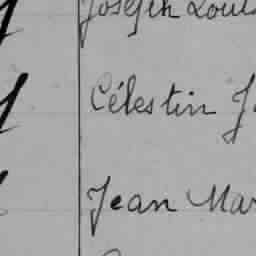 Joseph Louis
Célestin J
Jean Mar